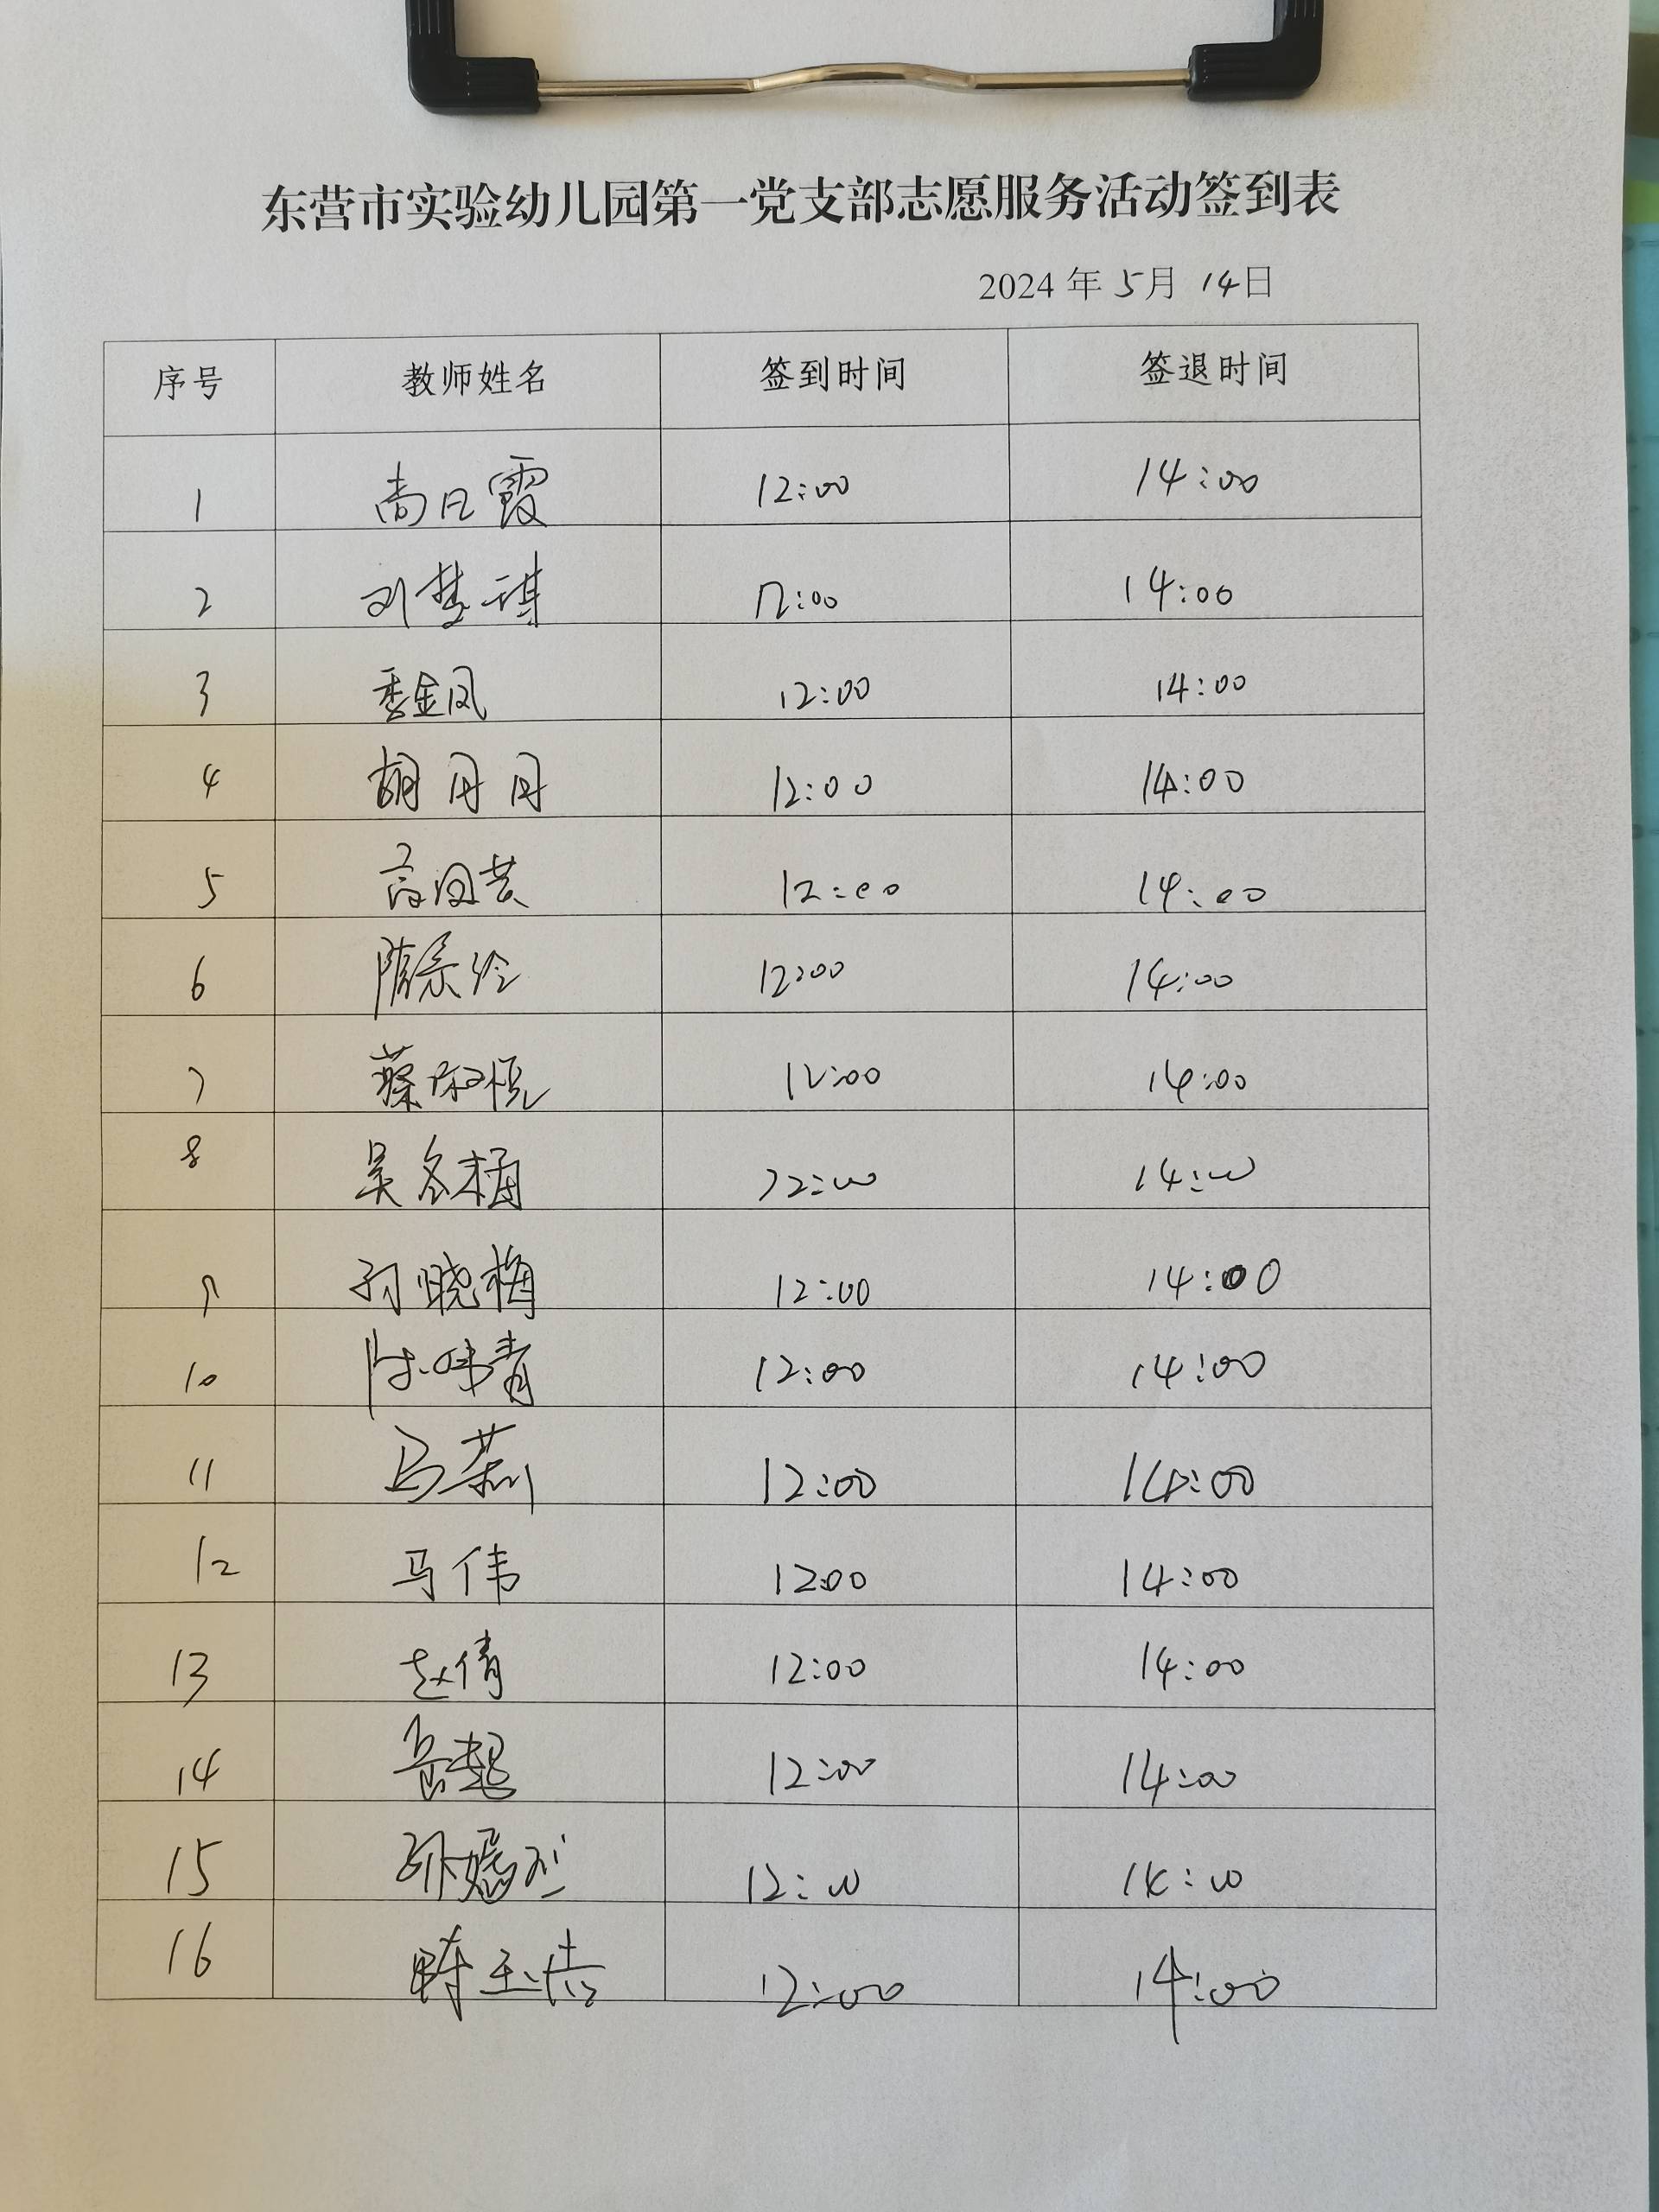 东营市实验幼儿园第一党支部志愿服务活动签到表
2024年5月14日
序号 教师姓名 签到时间 签退时间
1 尚日霞 12:00 14:00
2 刘梦琪 12:00 14:00
3 季金凤 12:00 14:00
4 胡丹丹 12:00 14:00
5 12:00 14:00
6 12:00 14:00
7 12:00 14:00
8 吴冬梅 12:00 14:00
9 孙晓梅 12:00 14:00
10 陈炜青 12:00 14:00
11 马莉 12:00 14:00
12 马伟 12:00 14:00
13 赵倩 12:00 14:00
14 岳超 12:00 14:00
15 12:00 14:00
16 12:00 14:00